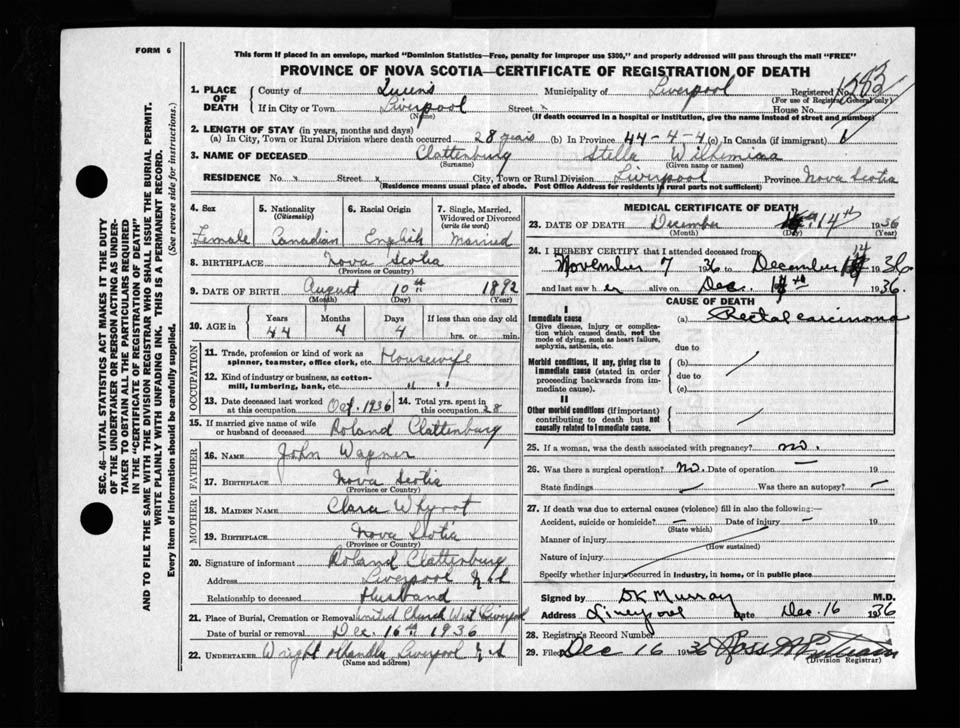 FORM 6
This form if placed in an envelope, marked "Dominion Statistics—Free, penalty for improper use $300," and properly addressed will pass through the mail "FREE"
PROVINCE OF NOVA SCOTIA—CERTIFICATE OF REGISTRATION OF DEATH
1. PLACE OF DEATH County of Queens Municipality of Liverpool Registered No. 1283
(For use of Registrar General only)
If in City or Town Liverpool Street x House No.
(Name) (If death occurred in a hospital or institution, give the name instead of street and number)
2. LENGTH OF STAY (in years, months and days)
(a) In City, Town or Rural Division where death occurred 28 years (b) In Province 44-4-4 (c) In Canada (if immigrant)
3. NAME OF DECEASED Clattenburg Stella Wilhemina
(Surname) (Given name or names)
RESIDENCE No. x Street x City, Town or Rural Division Liverpool Province Nova Scotia
(Residence means usual place of abode. Post Office Address for residents in rural parts not sufficient)
4. Sex 5. Nationality (Citizenship) 6. Racial Origin 7. Single, Married, Widowed or Divorced (write the word)
Female Canadian English Married
8. BIRTHPLACE Nova Scotia
(Province or Country)
9. DATE OF BIRTH August 10th 1892
(Month) (Day) (Year)
10. AGE in Years Months Days If less than one day old
44 4 4 hrs. or min.
OCCUPATION
11. Trade, profession or kind of work as spinner, teamster, office clerk, etc. Housewife
12. Kind of industry or business, as cotton-mill, lumbering, bank, etc. " "
13. Date deceased last worked at this occupation Oct. 1936 14. Total yrs. spent in this occupation 28
15. If married give name of wife or husband of deceased Roland Clattenburg
FATHER
16. NAME John Wagner
17. BIRTHPLACE Nova Scotia
(Province or Country)
MOTHER
18. MAIDEN NAME Clara Whynot
19. BIRTHPLACE Nova Scotia
(Province or Country)
20. Signature of informant Roland Clattenburg
Address Liverpool N.S.
Relationship to deceased Husband
21. Place of Burial, Cremation or Removal United Church West Liverpool
Date of burial or removal Dec. 16th 1936
22. UNDERTAKER Wright Liverpool N.S.
(Name and address)
MEDICAL CERTIFICATE OF DEATH
23. DATE OF DEATH December 14th 1936
(Month) (Day) (Year)
24. I HEREBY CERTIFY that I attended deceased from
November 7 1936 to December 14 1936
and last saw her alive on Dec. 14th 1936.
CAUSE OF DEATH
I
Immediate cause (a) Rectal carcinoma
Give disease, injury or complication which caused death, not the mode of dying, such as heart failure, asphyxia, asthenia, etc.
due to
Morbid conditions, if any, giving rise to immediate cause (stated in order proceeding backwards from immediate cause).
(b)
due to
(c)
II
Other morbid conditions (if important) contributing to death but not causally related to immediate cause.
25. If a woman, was the death associated with pregnancy? no.
26. Was there a surgical operation? no. Date of operation — 19
State findings — Was there an autopsy? —
27. If death was due to external causes (violence) fill in also the following:—
Accident, suicide or homicide? — Date of injury — 19
(State which)
Manner of injury
(How sustained)
Nature of injury
Specify whether injury occurred in industry, in home, or in public place
Signed by DK Murray M.D.
Address Liverpool Date Dec. 16 1936
28. Registrar's Record Number
29. Filed Dec 16 1936 Ross
(Division Registrar)
SEC. 46—VITAL STATISTICS ACT MAKES IT THE DUTY
OF THE UNDERTAKER OR PERSON ACTING AS UNDER-
TAKER TO OBTAIN ALL THE PARTICULARS REQUIRED
IN THE "CERTIFICATE OF REGISTRATION OF DEATH"
AND TO FILE THE SAME WITH THE DIVISION REGISTRAR WHO SHALL ISSUE THE BURIAL PERMIT.
WRITE PLAINLY WITH UNFADING INK. THIS IS A PERMANENT RECORD.
Every item of information should be carefully supplied. (See reverse side for instructions.)